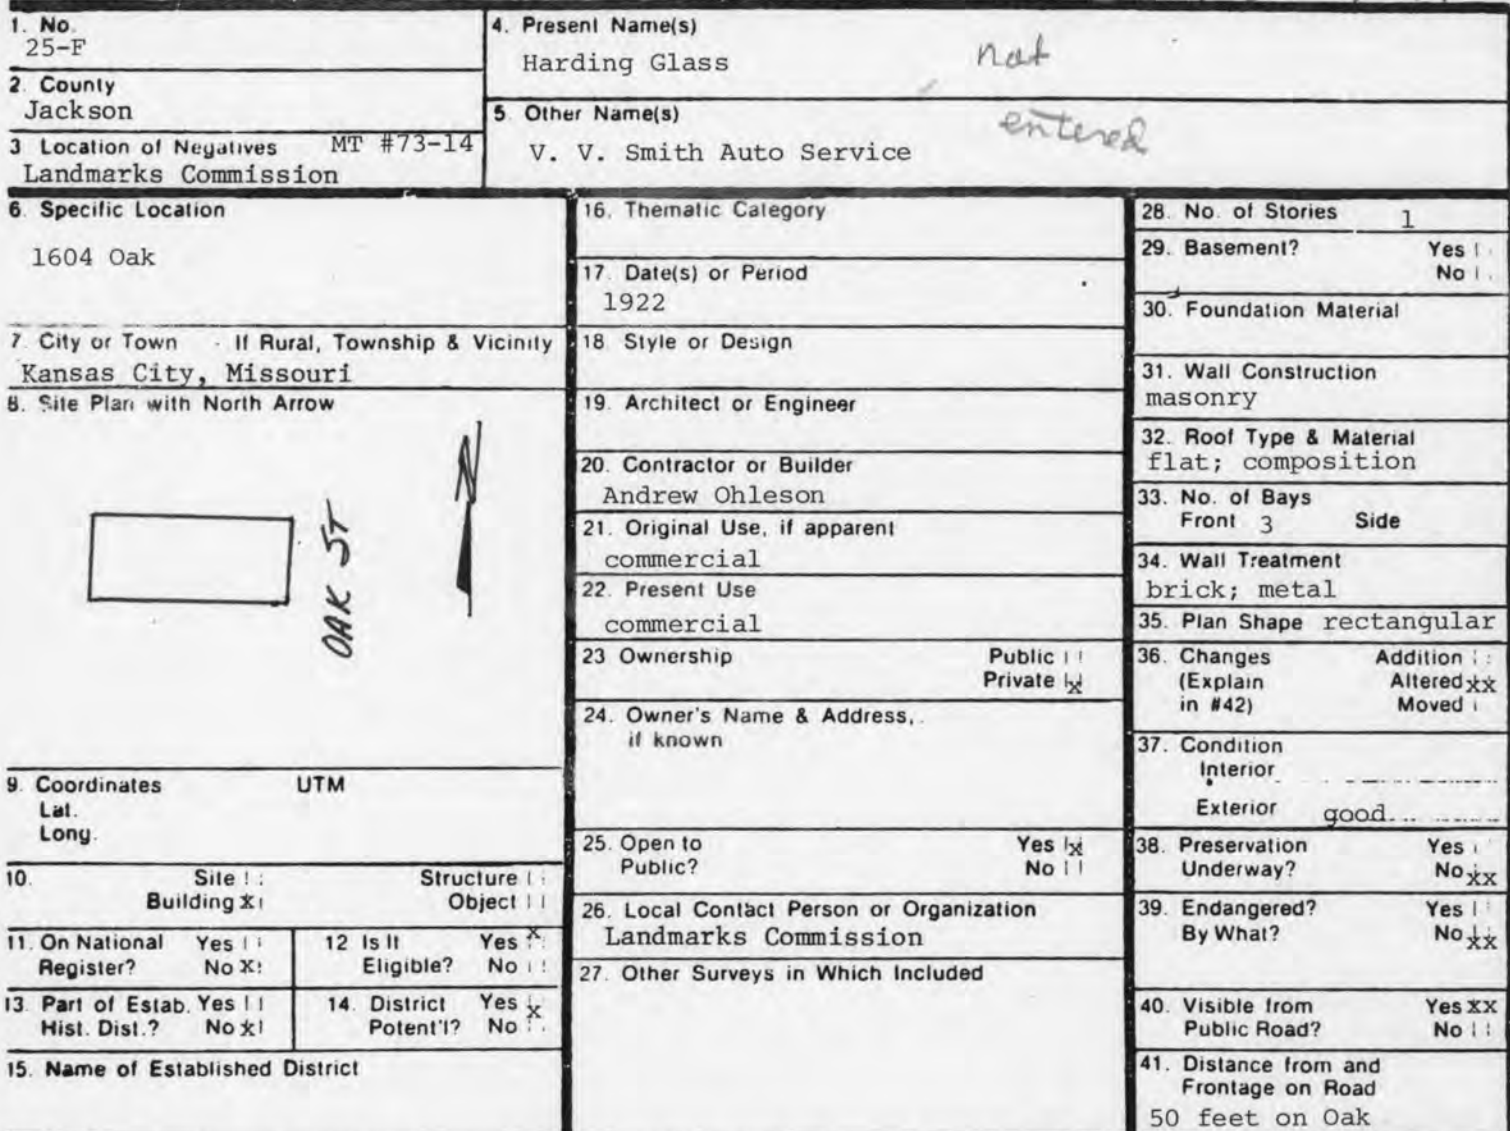 1. No.
25-F
2. County
Jackson
3 Location of Negatives MT #73-14
Landmarks Commission
4. Present Name(s)
Harding Glass
not
5. Other Name(s)
entered
V. V. Smith Auto Service
6. Specific Location
1604 Oak
7. City or Town If Rural, Township & Vicinity
Kansas City, Missouri
8. Site Plan with North Arrow
OAK ST
N
9. Coordinates UTM
Lat.
Long.
10. Site
Structure
Building X
Object
11. On National Register? Yes
No X
12 Is It Eligible? Yes X
No
13. Part of Estab. Hist. Dist.? Yes
No X
14. District Potent'l? Yes X
No
15. Name of Established District
16. Thematic Category
17. Date(s) or Period
1922
18. Style or Design
19. Architect or Engineer
20. Contractor or Builder
Andrew Ohleson
21. Original Use, if apparent
commercial
22. Present Use
commercial
23 Ownership Public
Private X
24. Owner's Name & Address,
if known
25. Open to Yes X
Public? No
26. Local Contact Person or Organization
Landmarks Commission
27. Other Surveys in Which Included
28. No. of Stories 1
29. Basement? Yes
No
30. Foundation Material
31. Wall Construction
masonry
32. Roof Type & Material
flat; composition
33. No. of Bays
Front 3 Side
34. Wall Treatment
brick; metal
35. Plan Shape rectangular
36. Changes Addition
(Explain Altered XX
in #42) Moved
37. Condition
Interior
Exterior good
38. Preservation Yes
Underway? No XX
39. Endangered? Yes
By What? No XX
40. Visible from Yes XX
Public Road? No
41. Distance from and
Frontage on Road
50 feet on Oak